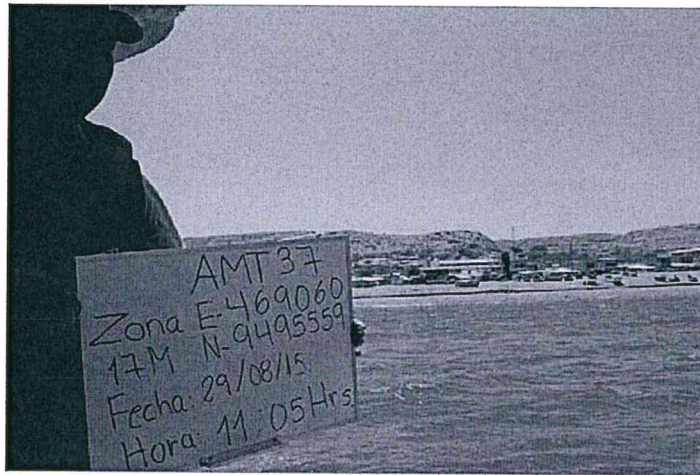 AMT 37
Zona E-469060
17M N-9495559
Fecha: 29/08/15
Hora: 11:05Hrs